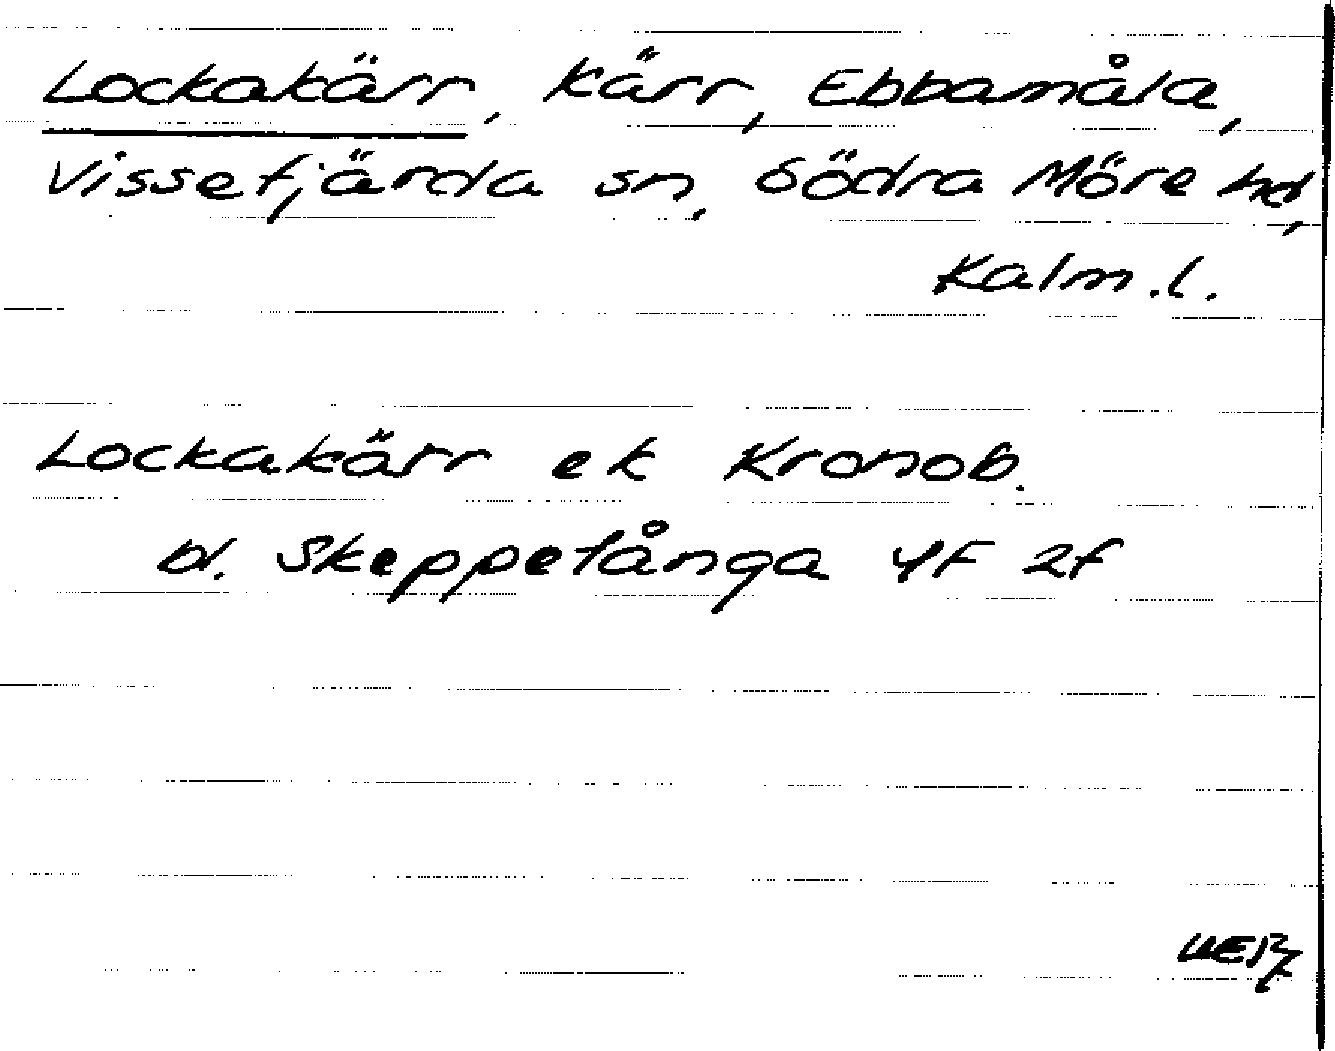 Lockakärr, kärr, Ebbamåla,
Vissefjärda sn, Södra Möre hd,
Kalm.l.
Lockakärr ek Kronob.
bl. Skeppetånga 4F 2f